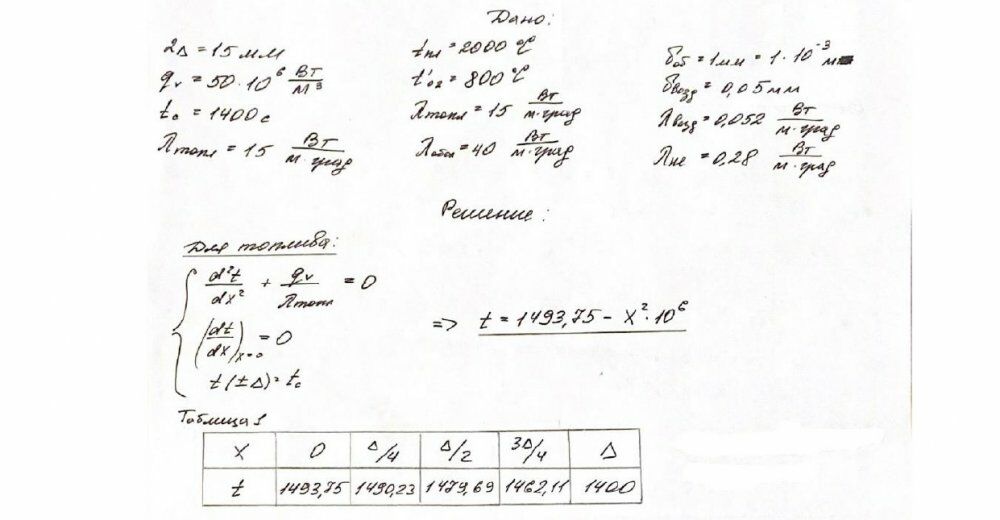 Дано:
2Δ = 15 мм
q_v = 50·10⁶ Вт/м³
t₀ = 1400 с
λтопл = 15 Вт/м·град
tпл = 2000 °C
t'₀₂ = 800 °C
λтопл = 15 Вт/м·град
λобол = 40 Вт/м·град
δоб = 1 мм = 1·10⁻³ м
δвозд = 0,05 мм
λвозд = 0,052 Вт/м·град
λне = 0,28 Вт/м·град
Решение:
Для топлива:
d²t/dx² + q_v/λтопл = 0
(dt/dx)x=0 = 0
t(±Δ) = tc
=> t = 1493,75 - x²·10⁶
Таблица 1
x 0 Δ/4 Δ/2 3Δ/4 Δ
t 1493,75 1490,23 1479,69 1462,11 1400